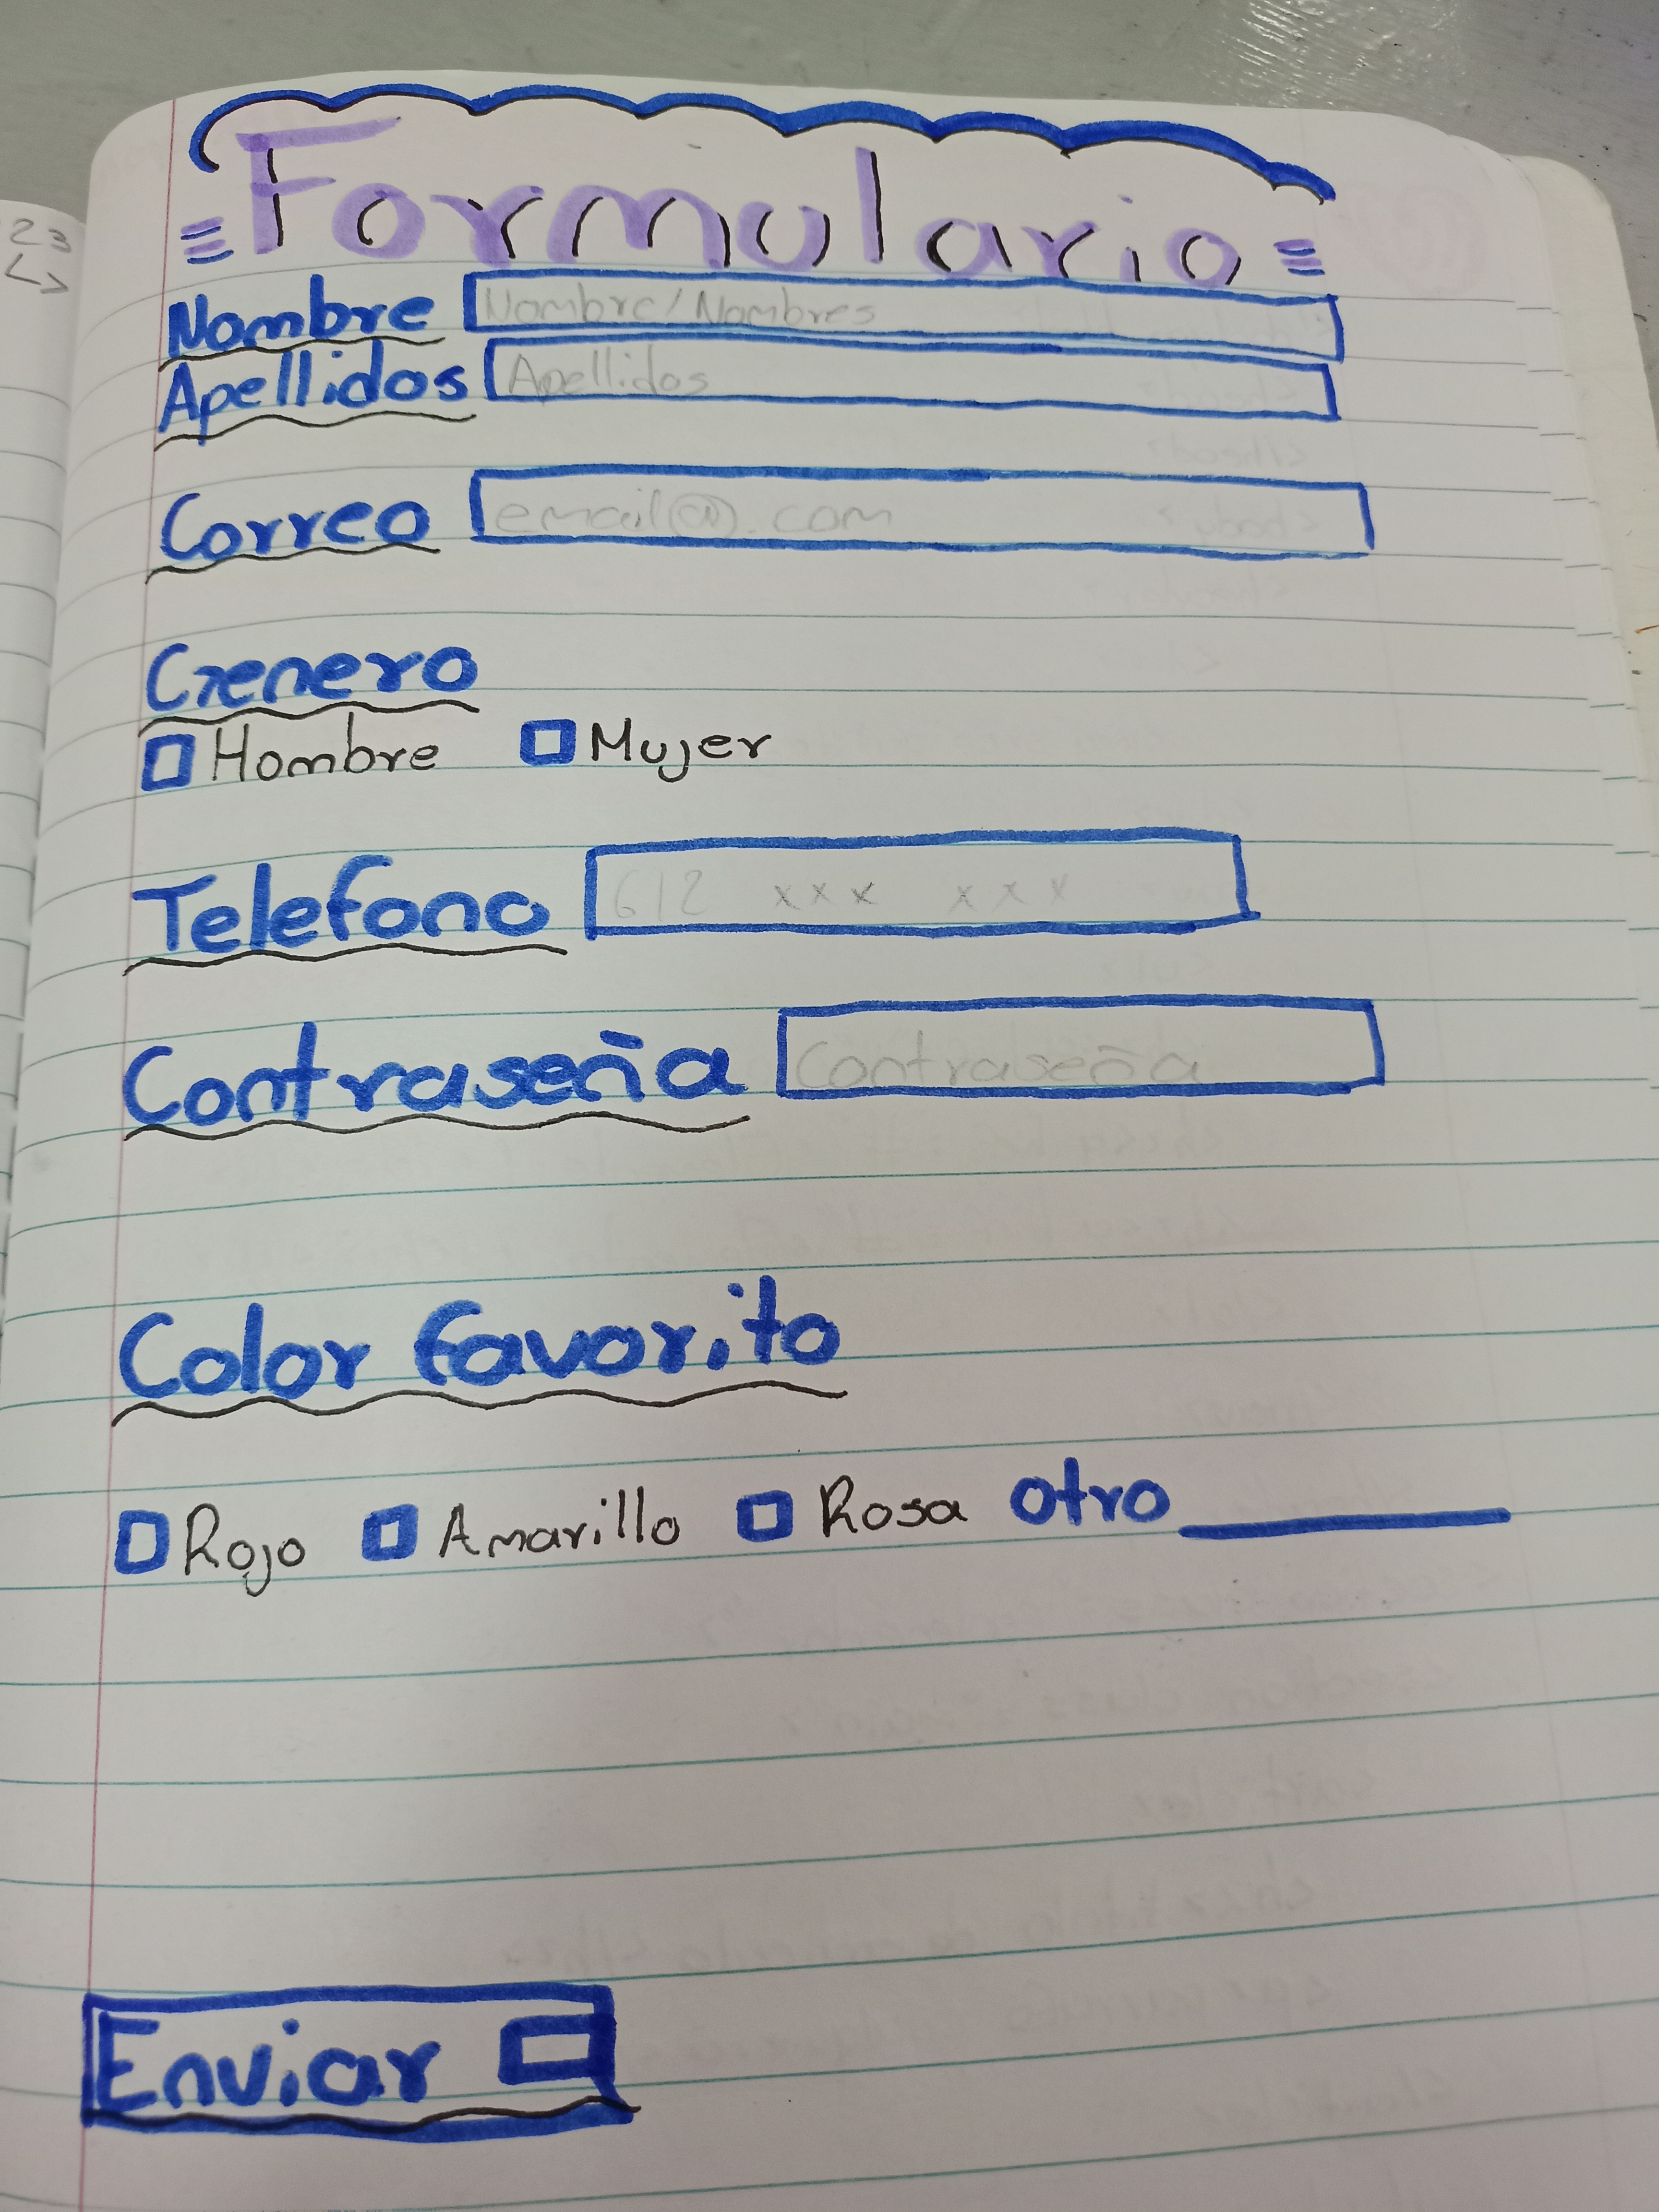 23
Formulario
Nombre Nombre/Nombres
Apellidos Apellidos
Correo email@.com
Genero
Hombre Mujer
Telefono 612 xxx xxx
Contraseña Contraseña
Color favorito
Rojo Amarillo Rosa otro
Enviar